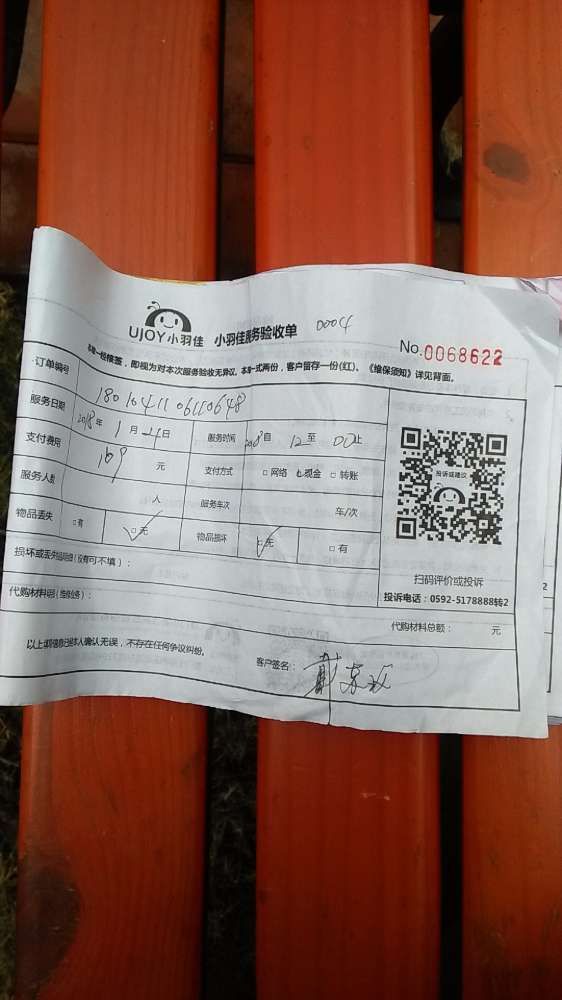 UJOY小羽佳 小羽佳服务验收单 0004
No.0068622
本单一经接签,即视为对本次服务验收无异议。本单一式两份,客户留存一份(红)。《维保须知》详见背面。
订单编号 1801041106110648
服务日期 2018年 1月 4日 服务时间 自 12 至 00 止
支付费用 169 元 支付方式 □网络 □现金 □转账
服务人数 人 服务车次 车/次
物品丢失 □有 □无 物品损坏 □无 □有
投诉或建议
扫码评价或投诉
投诉电话:0592-5178888转2
损坏或丢失物品描述(没有可不填):
代购材料明细( ): 代购材料总额: 元
以上 本人确认无误,不存在任何争议纠纷。
客户签名: 戴